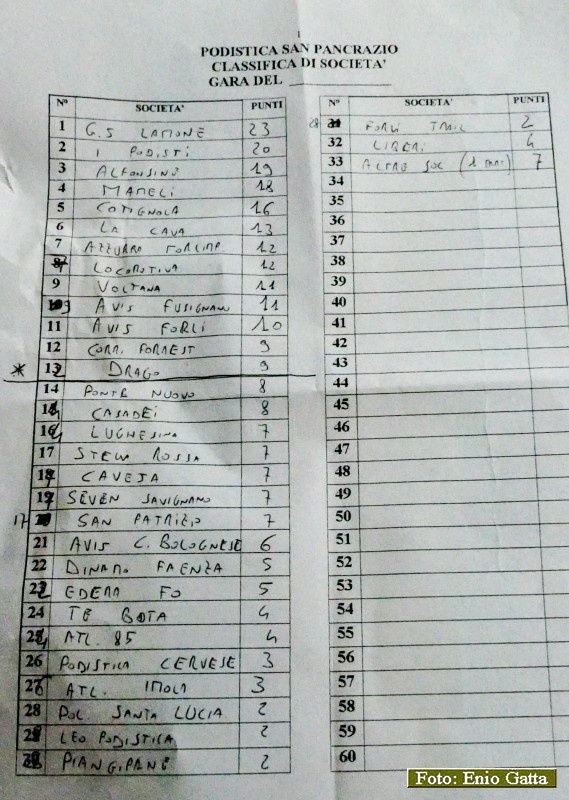 1
PODISTICA SAN PANCRAZIO
CLASSIFICA DI SOCIETA'
GARA DEL
N° SOCIETA' PUNTI
1 G.S LAMONE 23
2 I PODISTI 20
3 ALFONSINO 19
4 MAMELI 18
5 COTIGNOLA 16
6 LA CAVA 13
7 AZZURRA FORLIMP 12
8 LOCOMOTIVA 12
9 VOLTANA 11
9 AVIS FUSIGNANO 11
11 AVIS FORLÌ 10
12 CORR. FORREST 9
* 12 DRAGO 9
14 PONTE NUOVO 8
14 CASADEI 8
16 LUGHESINA 7
17 STELLA ROSSA 7
18 CAVEJA 7
19 SEVEN SAVIGNANO 7
17 20 SAN PATRIZIO 7
21 AVIS C. BOLOGNESE 6
22 DINAMO FAENZA 5
22 EDERA FO 5
24 TE BOTA 4
25 ATL. 85 4
26 PODISTICA CERVESE 3
27 ATL. IMOLA 3
28 POL. SANTA LUCIA 2
28 LEO PODISTICA 2
PIANGIPANE 2
N° SOCIETA' PUNTI
28 31 FORLÌ TRAIL 2
32 LIBERI 4
33 ALTRE SOC (1 PART) 7
34
35
36
37
38
39
40
41
42
43
44
45
46
47
48
49
50
51
52
53
54
55
56
57
58
59
60
Foto: Enio Gatta